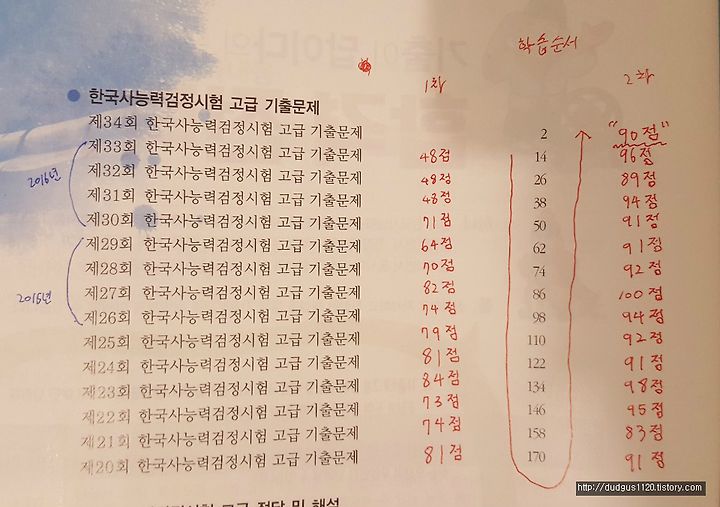 학습순서
1차 2차
한국사능력검정시험 고급 기출문제
제34회 한국사능력검정시험 고급 기출문제 2 "90점"
제33회 한국사능력검정시험 고급 기출문제 48점 14 96점
2016년
제32회 한국사능력검정시험 고급 기출문제 48점 26 89점
제31회 한국사능력검정시험 고급 기출문제 48점 38 94점
제30회 한국사능력검정시험 고급 기출문제 71점 50 91점
제29회 한국사능력검정시험 고급 기출문제 64점 62 91점
제28회 한국사능력검정시험 고급 기출문제 70점 74 92점
2015년
제27회 한국사능력검정시험 고급 기출문제 82점 86 100점
제26회 한국사능력검정시험 고급 기출문제 74점 98 94점
제25회 한국사능력검정시험 고급 기출문제 79점 110 92점
제24회 한국사능력검정시험 고급 기출문제 81점 122 91점
제23회 한국사능력검정시험 고급 기출문제 84점 134 98점
제22회 한국사능력검정시험 고급 기출문제 73점 146 95점
제21회 한국사능력검정시험 고급 기출문제 74점 158 83점
제20회 한국사능력검정시험 고급 기출문제 81점 170 91점
http://dudgus1120.tistory.com